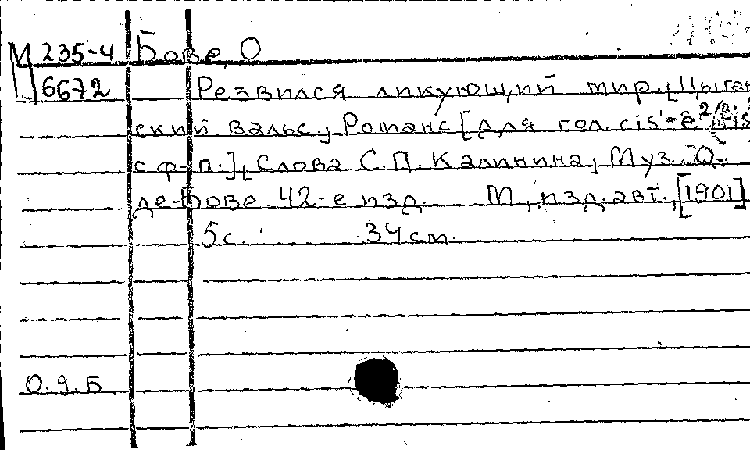 М 235-4 Бове, О
6672 Резвился ликующий мир. [Цыган
ский вальс], Романс [для гол. cis'-e²
с ф-п.], Слова С.П. Калинина, Муз. О.
де-Бове 42-е изд. М, изд. авт., [1901]
5с. 34 см.
О.д.Б